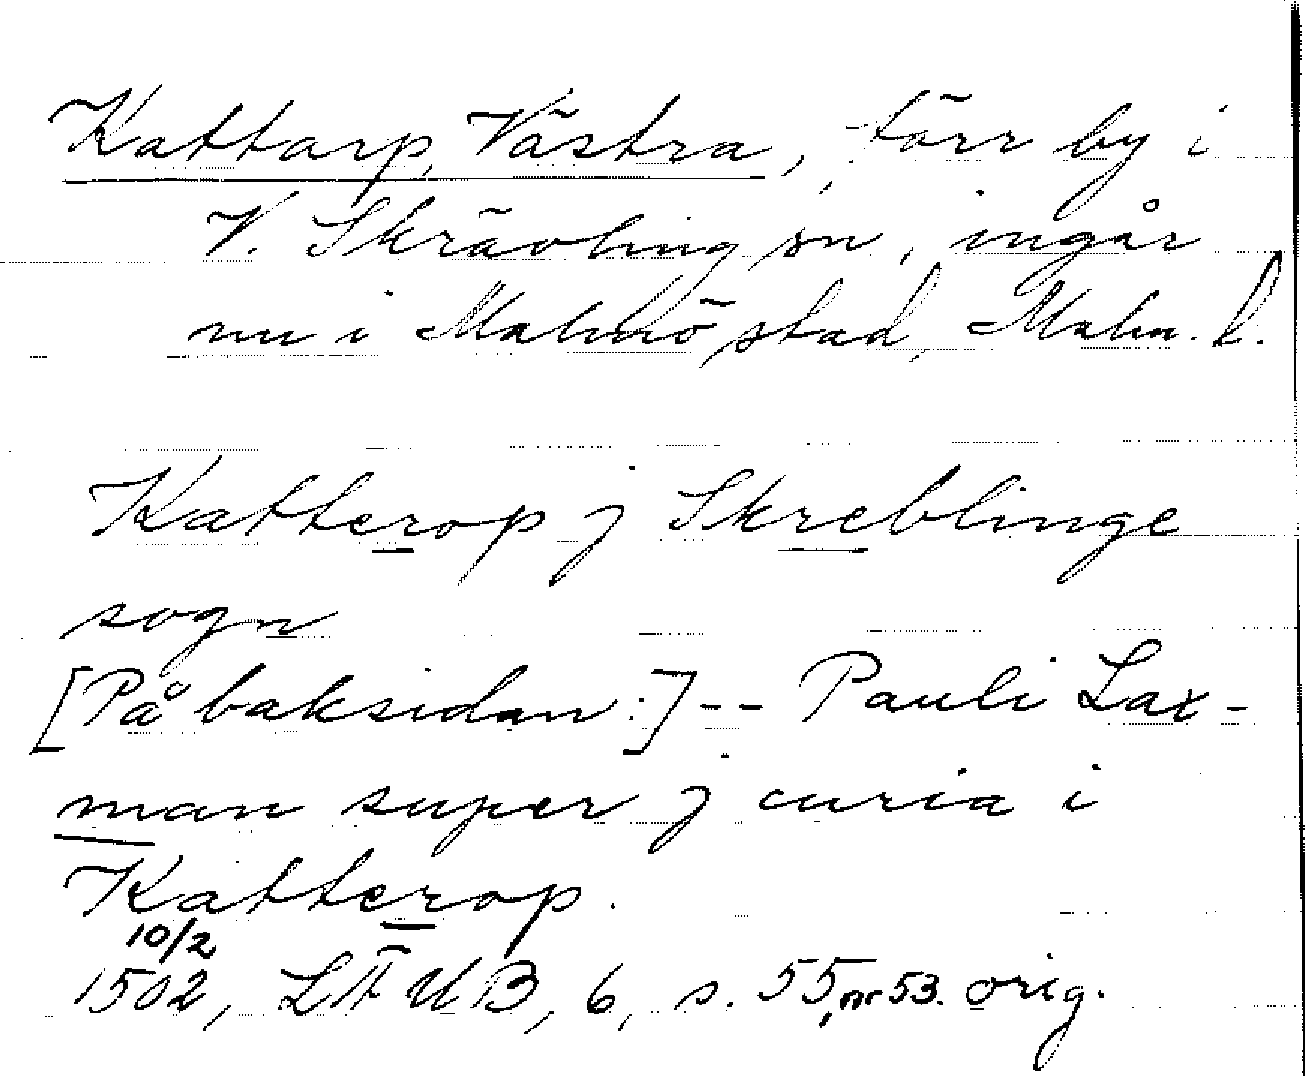 Kattarp, Västra, förr by i
V. Skrävling sn, ingår
nu i Malmö stad, Malm. l.
Katterop j Skreblinge
sogn
[På baksidan:]-- Pauli Lax-
man super j curia i
Katterop.
10/2
1502, LÄUB, 6, s. 55, nr 53. orig.